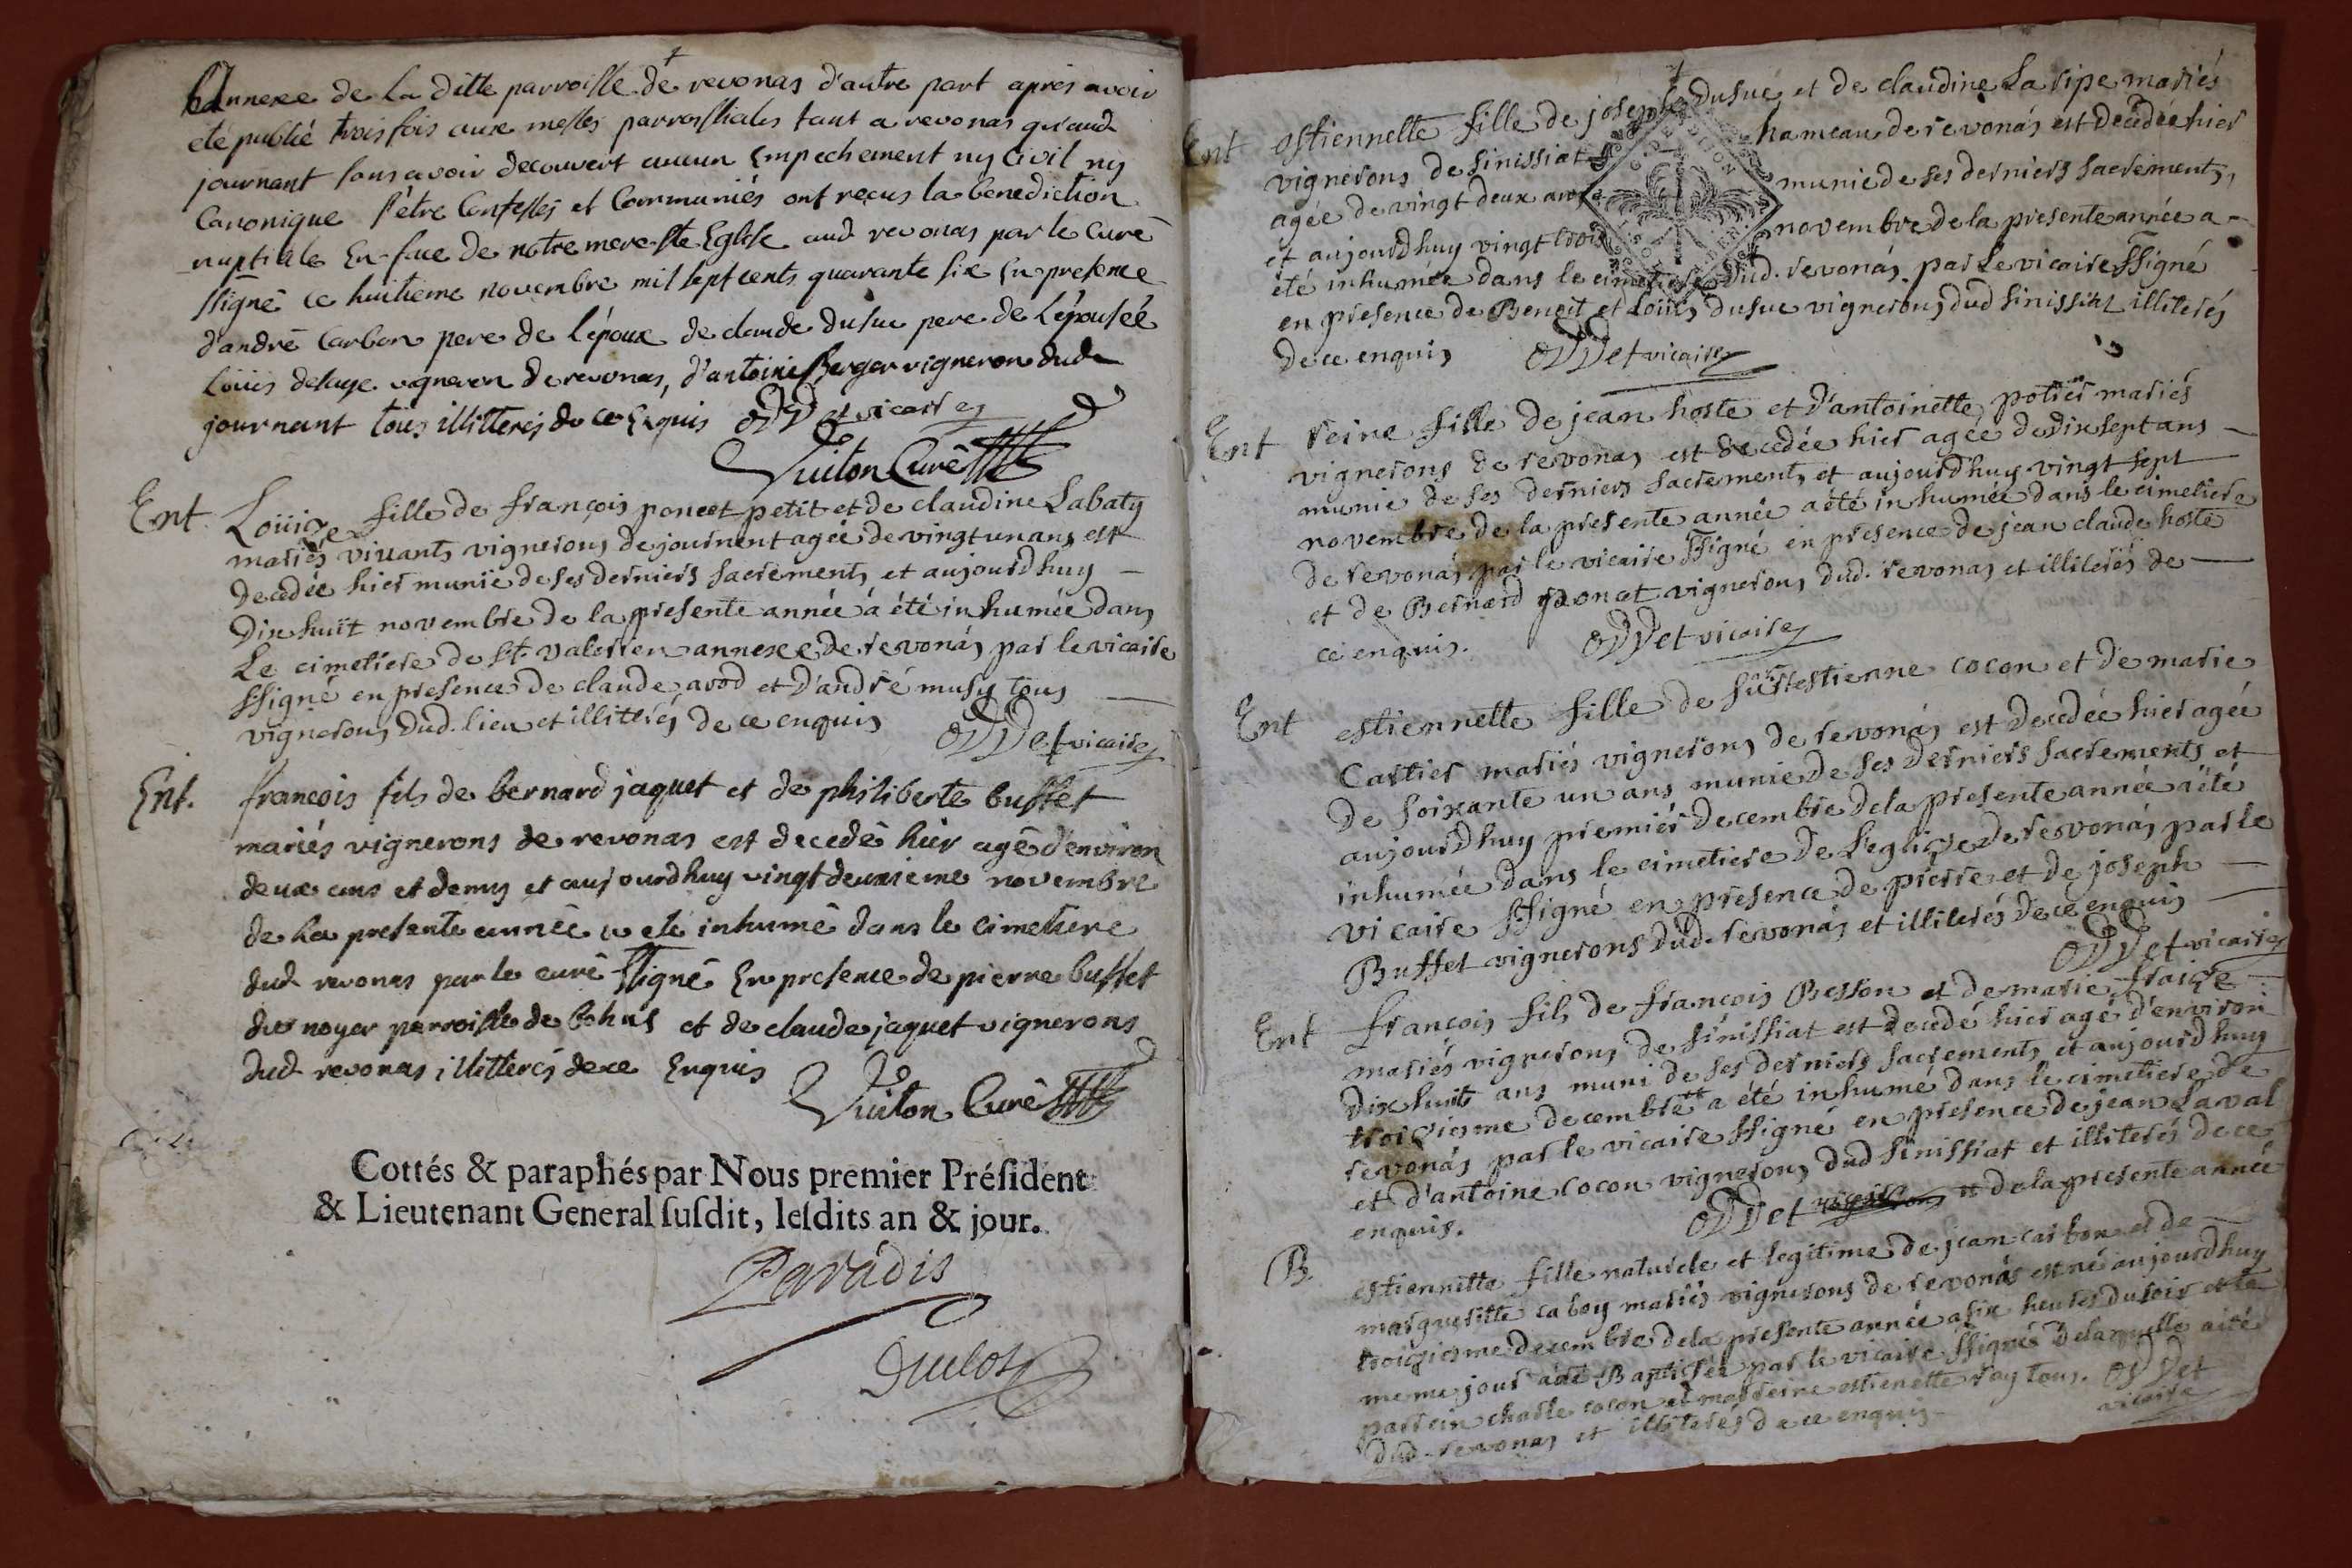 annexe de La ditte parroisse de revonas d'autre part apres avoir
eté publié trois fois aux messes parroissiales tant a revonas qu'aud
journant sans avoir decouvert aucun Empechement ny Civil ny
Canonique s'étre Confessés et Communiés ont reçus la benediction
nuptiale En face de notre mere ste Eglise aud revonas par le Curé
ssigné ce huitieme novembre mil sept cents quarante six En presence
d'andré Carbon pere de l'époux de claude dusuc pere de L'épousée
Loüis delaye vigneron de revonas, d'antoine Berger vigneron dud
journant tous illitterés de ce Enquis oDDet vicaire
Vuiton Curé
Ent. Loüise fille de françois poncet petit et de claudine Labaty
mariés vivants vignerons de journent agée de vingt un ans est
decedée hier munie de ses derniers sacrements et aujourdhuy
dix huit novembre de la presente année á été inhumée dans
Le cimetiere de st. valerien annexe de revonás par le vicaire
ssigné en presence de claude avod et d'andré musy tous
vignerons dud. lieu et illitterés de ce enquis oDDet vicaire
Ent. françois fils de bernard jaquet et de philiberte buffet
mariés vignerons de revonas est decedé hier agé d'environ
deux ans et demy et aujourdhuy vingt deuxieme novembre
de la presente année a eté inhumé dans le cimetiere
dud revonas par le curé ssigné En presence de pierre buffet
du noyer parroisse de bohas et de claude jaquet vignerons
dud revonas illitterés de ce Enquis
Vuiton Curé
Cottés & paraphés par Nous premier Président
& Lieutenant General susdit, lesdits an & jour.
Paradis
Duclos
Ent estiennette fille de joseph dusuc et de claudine La ripe mariés
vignerons de sinissiat hameau de revonás est decedée hier
agée de vingt deux ans munie de ses derniers sacrements,
et aujourdhuy vingt trois novembre de la presente année a
été inhumée dans le cimetiere dud. revonás par Le vicaire ssigné
en presence de Benoit et Loüis dusuc vignerons dud sinissiat illiterés
de ce enquis oDDet vicaire
Ent reine fille de jean hoste et d'antoinette potier mariés
vignerons de revonas est decedée hier agée de dix sept ans
munie de ses derniers sacrements et aujourdhuy vingt sept
novembre de la presente année a été inhumée dans le cimetiere
de revonás par le vicaire ssigné en presence de jean claude hoste
et de Bernard vignerons dud. revonas et illiterés de
ce enquis. oDDet vicaire
Ent estiennette fille de estienne cocon et de marie
Cartier mariés vignerons de revonás est decedée hier agée
de soixante un ans munie de ses derniers sacrements et
aujourdhuy premier decembre de la presente année á été
inhumée dans le cimetiere de L'eglise de revonás par le
vicaire ssigné en presence de pierre et de joseph
Buffet vignerons dud. revonás et illiterés de ce enquis
oDDet vicaire
Ent françois fils de françois Besson et de marie fraise
mariés vignerons de sinissiat est decedé hier agé d'environ
dix huit ans muni de ses derniers sacrements et aujourdhuy
troisiesme decembre a été inhumé dans le cimetiere de
revonás par le vicaire ssigné en presence de jean Laval
et d'antoine cocon vignerons dud sinissiat et illiterés de ce
enquis. oDDet de la presente année
B. estiennette fille naturele et legitime de jean carbon et de
margueritte cabuy mariés vignerons de revonás est né aujourdhuy
troisiesme decembre de la presente année a six heures du soir et le
meme jour a été Baptisée par le vicaire ssigné de laquelle a été
parrein charle cocon et marreine estienette ray tous. oDDet
dud. revonas et illiterés de ce enquis vicaire